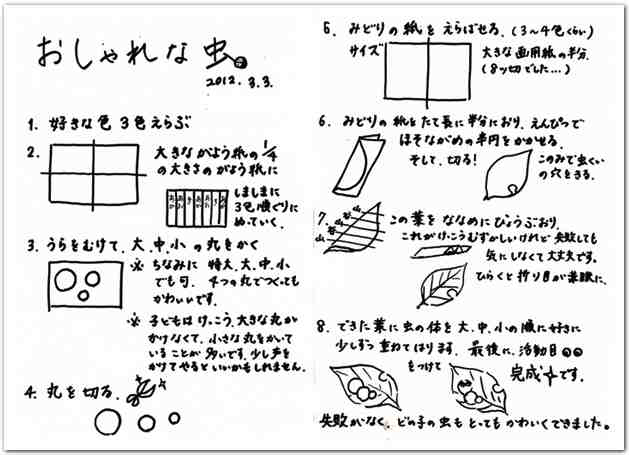 おしゃれな虫。
2012. 3.3.
1. 好きな色 3色えらぶ
2. 大きながよう紙の 1/4
の大きさのがよう紙に
しましまに
3色順ぐりに
ぬっていく.
3. うらをむけて、大、中、小 の丸をかく
※ ちなみに 特大、大、中、小
でも可. 4つの丸でつくっても
かわいいです.
※ 子どもは けっこう、大きな丸が
かけなくて、小さな丸をかいて
いることが 多いです。少し声を
かけてやると いいかもしれません.
4. 丸を切る.
5. みどりの紙をえらばせる. (3〜4色くらい)
サイズ
大きな画用紙の半分.
(8ッ切でした…)
6. みどりの紙をたて長に半分におり、えんぴつで
ほそながめの半円をかかせる.
そして、切る!
このみで虫くい
の穴をきる.
7. この葉をななめにびょうぶおり.
山 谷 山 谷 山
これがけっこうむずかしいけれど 失敗しても
気にしなくて大丈夫です.
ひらくと折り目が葉脈に.
8. できた葉に虫の体を大、中、小の順に好きに
少しずつ重ねてはります. 最後に、活動目
をつけて 完成です.
失敗がなく、どの子の虫もとってもかわいくできました.